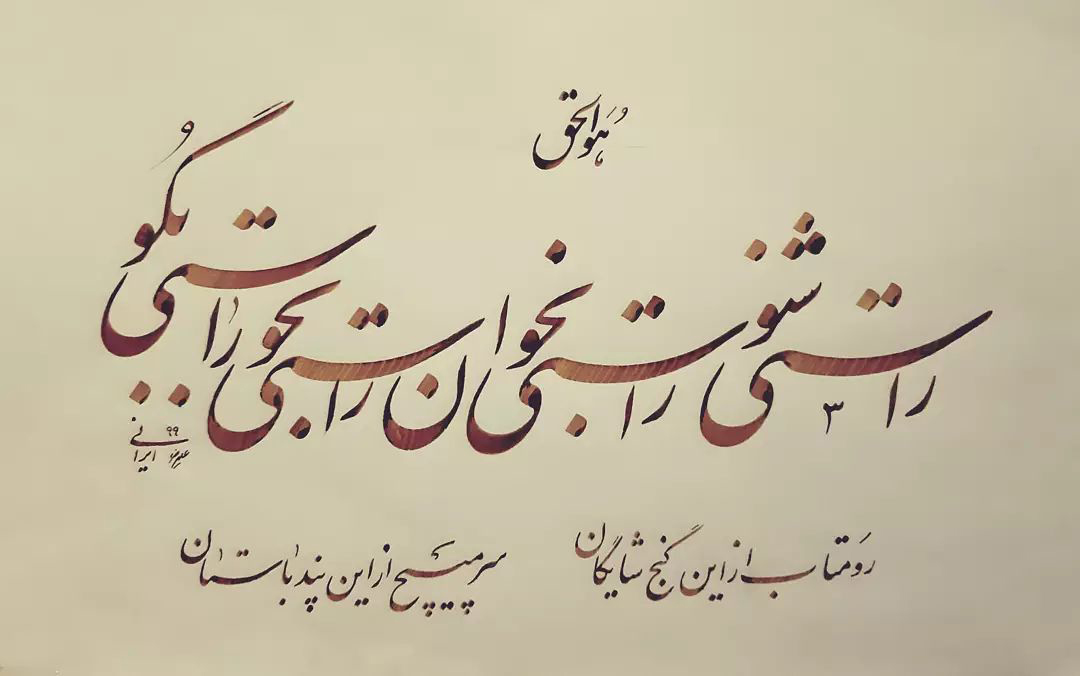 هُوَ الحق
راستی شنو راستی بخوان راستی بجو راستی بگو
رَو متاب از این گنج شایگان سر مپیچ از این پند باستان
۹۹
ایرانی